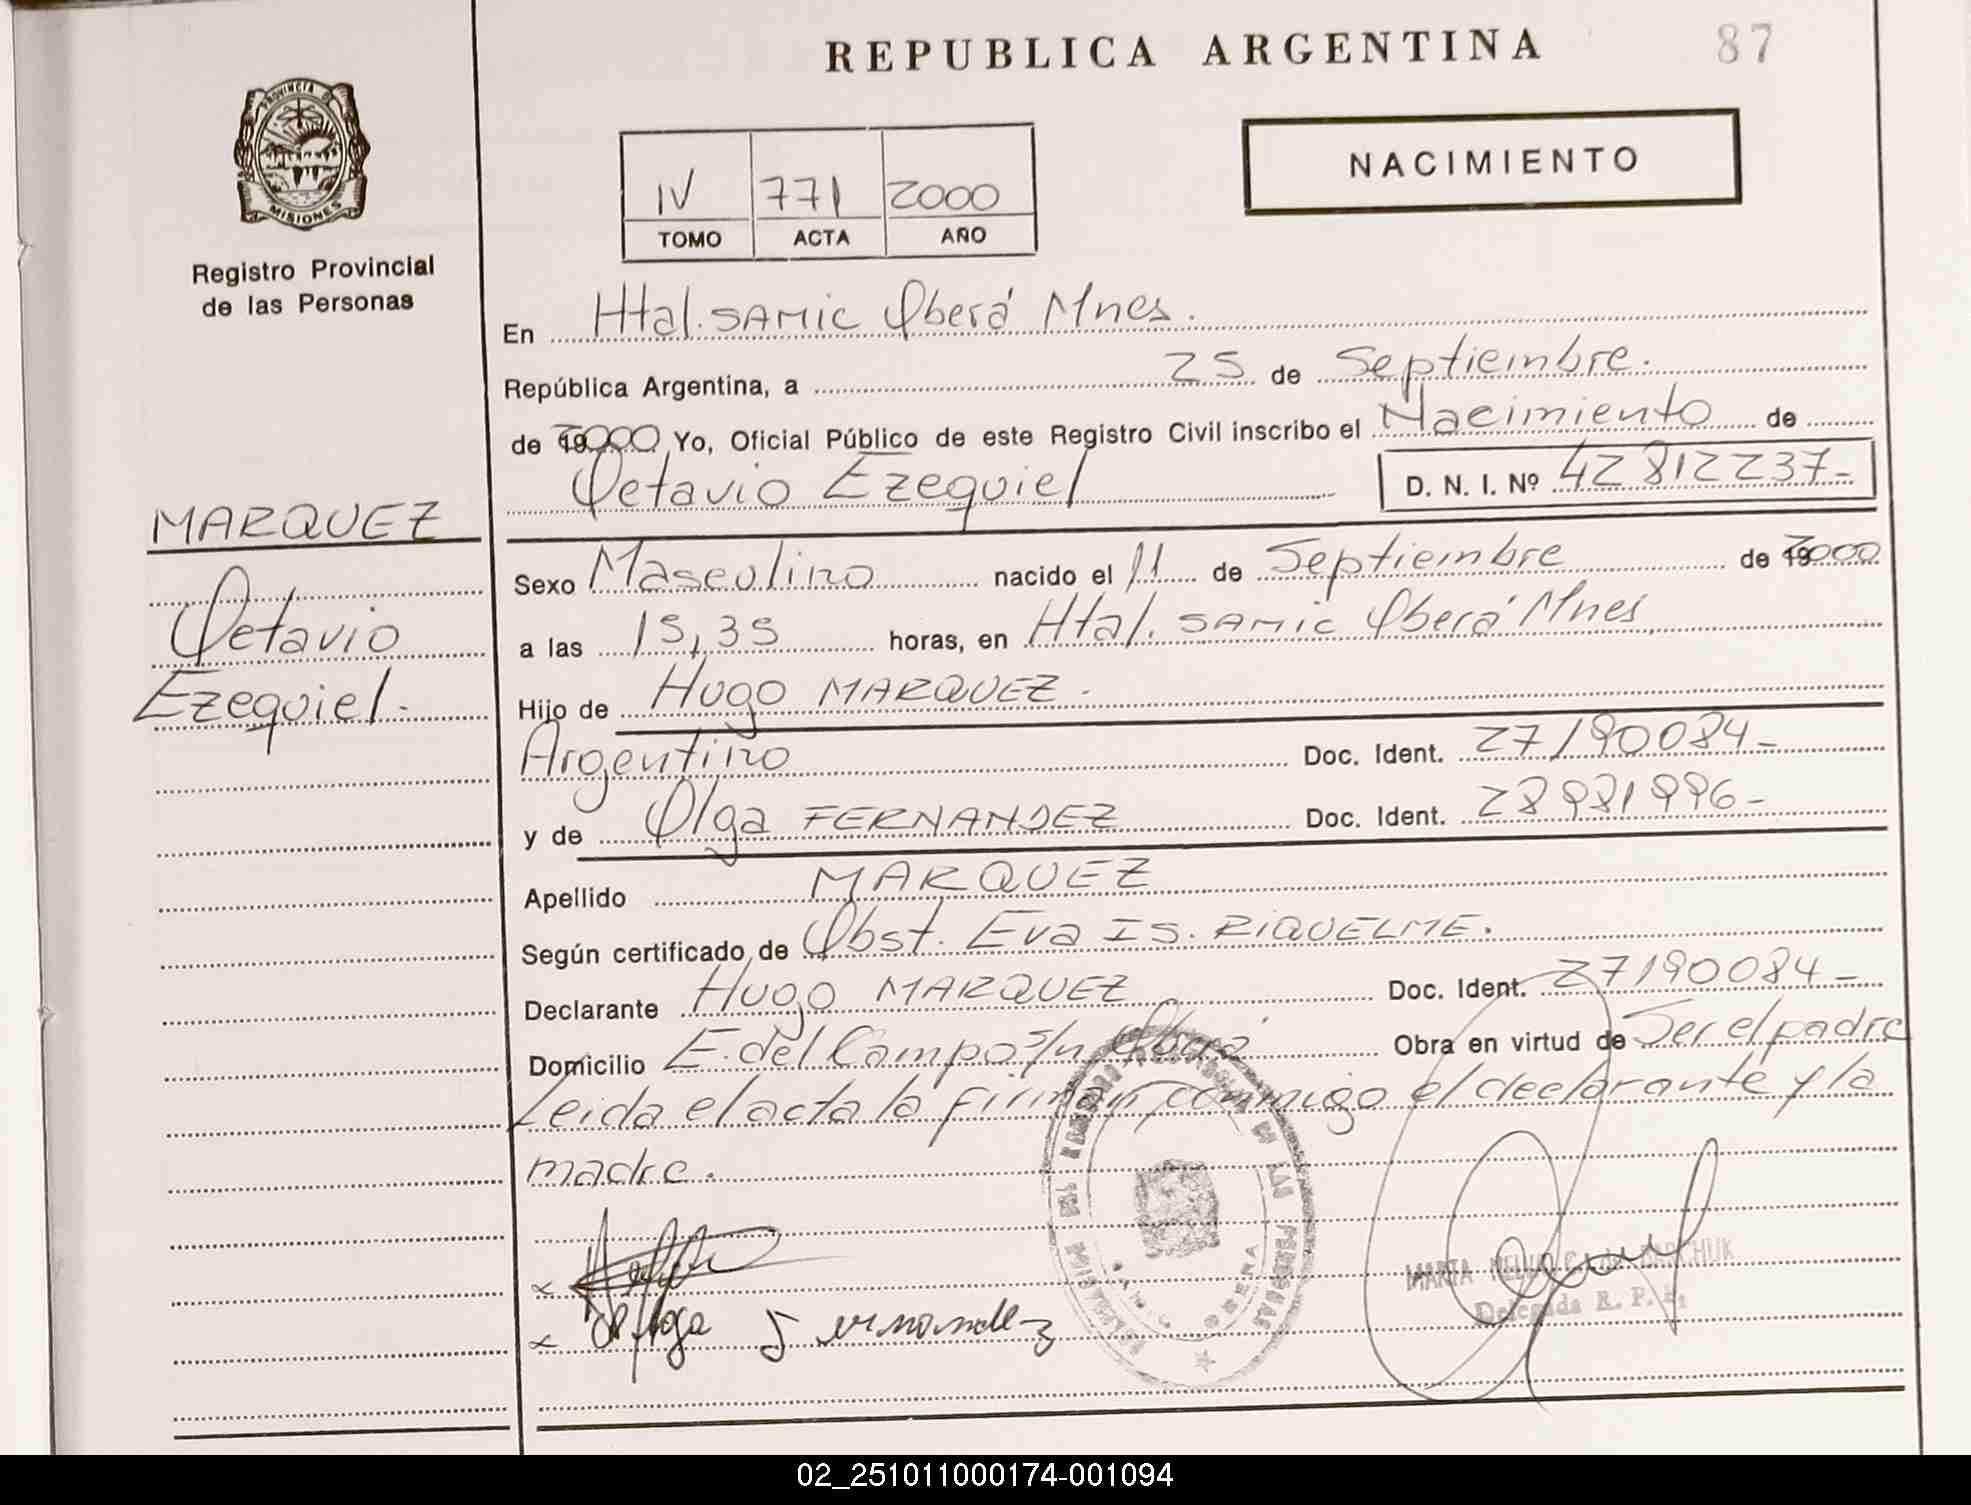 REPUBLICA ARGENTINA
87
PROVINCIA DE
MISIONES
Registro Provincial
de las Personas
IV 771 2000
TOMO ACTA AÑO
NACIMIENTO
En Htal. SAMIC Oberá Mnes.
República Argentina, a 25 de Septiembre.
de 2000 Yo, Oficial Público de este Registro Civil inscribo el Nacimiento de
Octavio Ezequiel D. N. I. Nº 42812237-
MARQUEZ
Octavio
Ezequiel.
Sexo Masculino nacido el 11 de Septiembre de 2000
a las 15,35 horas, en Htal. SAMIC Oberá Mnes
Hijo de Hugo MARQUEZ.
Argentino Doc. Ident. 27190084-
y de Olga FERNANDEZ Doc. Ident. 28981996-
Apellido MARQUEZ
Según certificado de Obst. Eva IS. RIQUELME.
Declarante Hugo MARQUEZ Doc. Ident. 27190084-
Domicilio E. del Campo s/n Oberá Obra en virtud de Ser el padre
Leida el acta la firman conmigo el declarante y la
madre.
x
x Olga Fernandez
MARTA
Delegada R. P.
OBERA
LAS PERSONAS
02_251011000174-001094